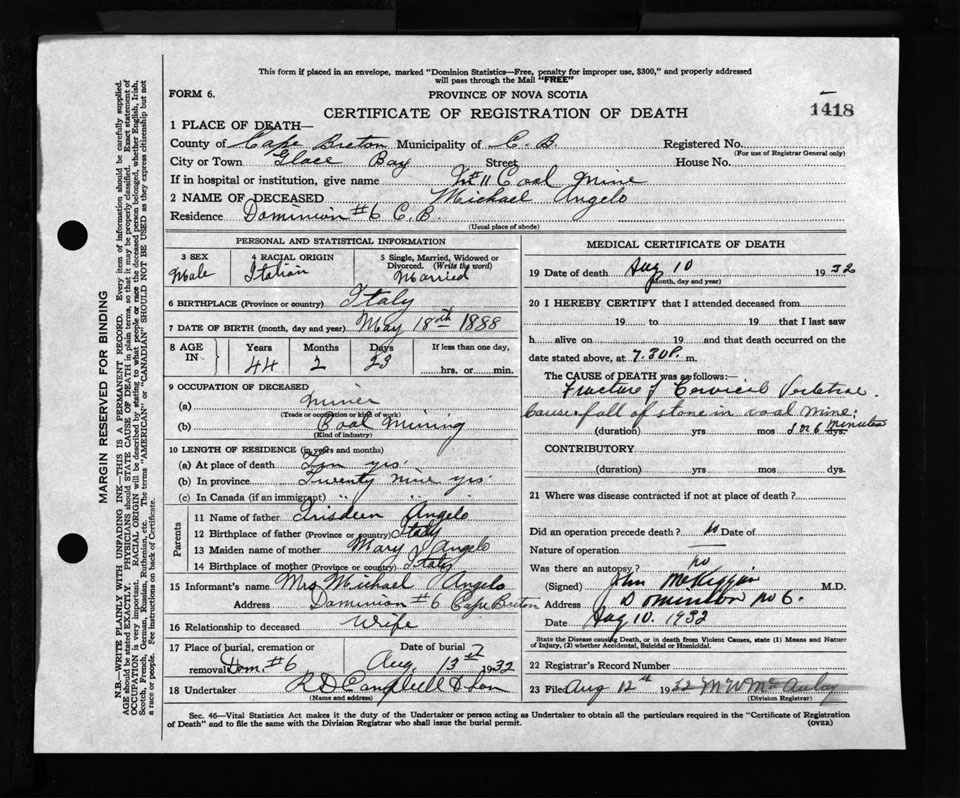 This form if placed in an envelope, marked "Dominion Statistics—Free, penalty for improper use, $300," and properly addressed
will pass through the Mail "FREE"
FORM 6.
PROVINCE OF NOVA SCOTIA
CERTIFICATE OF REGISTRATION OF DEATH
1418
1 PLACE OF DEATH—
County of Cape Breton Municipality of C. B. Registered No.
(For use of Registrar General only)
City or Town Glace Bay Street House No.
If in hospital or institution, give name #11 Coal Mine
2 NAME OF DECEASED Michael Angelo
Residence Dominion #6 C.B.
(Usual place of abode)
PERSONAL AND STATISTICAL INFORMATION
3 SEX
Male
4 RACIAL ORIGIN
Italian
5 Single, Married, Widowed or
Divorced. (Write the word)
Married
6 BIRTHPLACE (Province or country) Italy
7 DATE OF BIRTH (month, day and year) May 18th 1888
8 AGE IN
Years Months Days If less than one day,
44 2 23 hrs. or min.
9 OCCUPATION OF DECEASED
(a) Miner
(Trade or occupation or kind of work)
(b) Coal Mining
(Kind of industry)
10 LENGTH OF RESIDENCE (in years and months)
(a) At place of death Ten yrs.
(b) In province Twenty nine yrs.
(c) In Canada (if an immigrant) " " "
Parents
11 Name of father Angelo
12 Birthplace of father (Province or country) Italy
13 Maiden name of mother Mary Angelo
14 Birthplace of mother (Province or country) Italy
15 Informant's name Mrs Michael Angelo
Address Dominion #6 Cape Breton
16 Relationship to deceased Wife
17 Place of burial, cremation or Date of burial
removal Dom. #6 Aug. 13th 1932
18 Undertaker R D Campbell & Son
(Name and address)
MEDICAL CERTIFICATE OF DEATH
19 Date of death Aug 10 1932
(Month, day and year)
20 I HEREBY CERTIFY that I attended deceased from
19 to 19 that I last saw
h alive on 19 and that death occurred on the
date stated above, at 7.30 P. m.
The CAUSE of DEATH was as follows:
Fracture of Cervical Vertebrae.
Cause: fall of stone in coal mine;
(duration) yrs mos 5 or 6 minutes dys.
CONTRIBUTORY
(duration) yrs. mos. dys.
21 Where was disease contracted if not at place of death?
Did an operation precede death? no Date of
Nature of operation
Was there an autopsy? no
(Signed) John McKiggan M.D.
Address Dominion no 6.
Date Aug 10. 1932
State the Disease causing Death, or in death from Violent Causes, state (1) Means and Nature
of Injury, (2) whether Accidental, Suicidal or Homicidal.
22 Registrar's Record Number
23 Filed Aug 12th 1932 M W McAulay
(Division Registrar)
Sec. 46—Vital Statistics Act makes it the duty of the Undertaker or person acting as Undertaker to obtain all the particulars required in the "Certificate of Registration
of Death" and to file the same with the Division Registrar who shall issue the burial permit. (OVER)
MARGIN RESERVED FOR BINDING
N.B.—WRITE PLAINLY WITH UNFADING INK—THIS IS A PERMANENT RECORD. Every item of information should be carefully supplied.
AGE should be stated EXACTLY. PHYSICIANS should STATE CAUSE OF DEATH in plain terms, so that it may be properly classified. Exact statement of
OCCUPATION is very important. RACIAL ORIGIN will be described by stating to what people or race the deceased person belonged, whether English, Irish,
Scotch, French, German, Russian, Ruthenian, etc. The terms "AMERICAN" or "CANADIAN" SHOULD NOT BE USED as they express citizenship but not
a race or people. See instructions on back of Certificate.